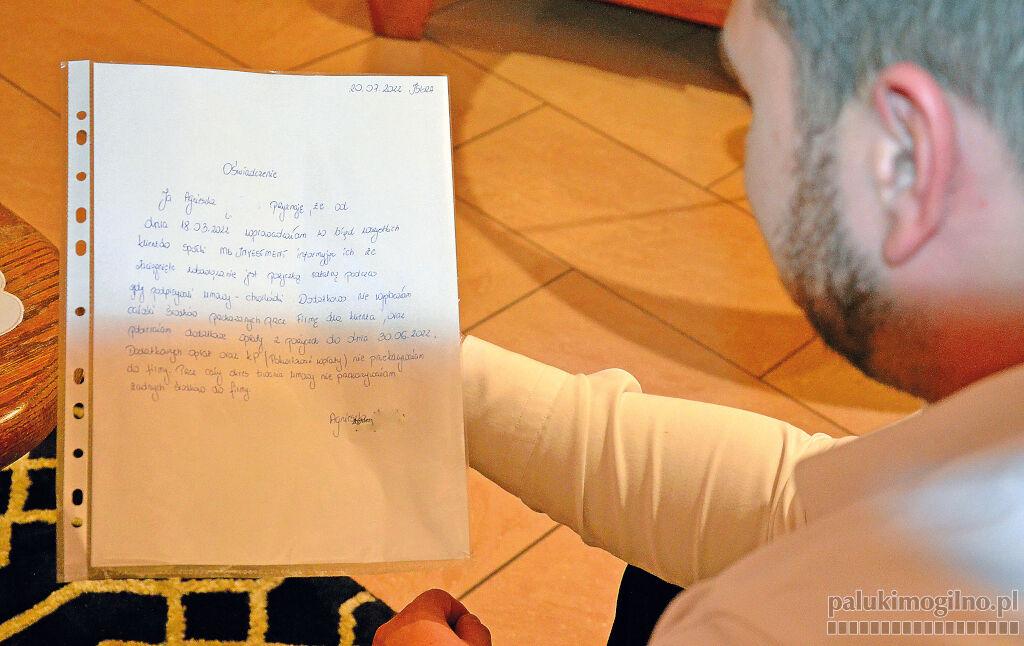 20.07.2022
Oświadczenie
Ja Agnieszka przyznaję, że od
dnia 18.03.2022 wprowadzałam w błąd wszystkich
klientów spółki INVESTMENT informując ich że
zaciągnięte zobowiązanie jest pożyczką ratalną podczas
gdy podpisywali umowy - chwilówki Dodatkowo nie wypłacałam
całości środków przekazanych przez Firmę dla klienta, oraz
pobierałam dodatkowe opłaty z pożyczek do dnia 30.06.2022.
Dodatkowych opłat oraz KP (Potwierdzeń wpłaty) nie przekazywałam
do firmy. Przez cały okres trwania umowy nie przekazywałam
żadnych środków do firmy.
Agnieszka
palukimogilno.pl